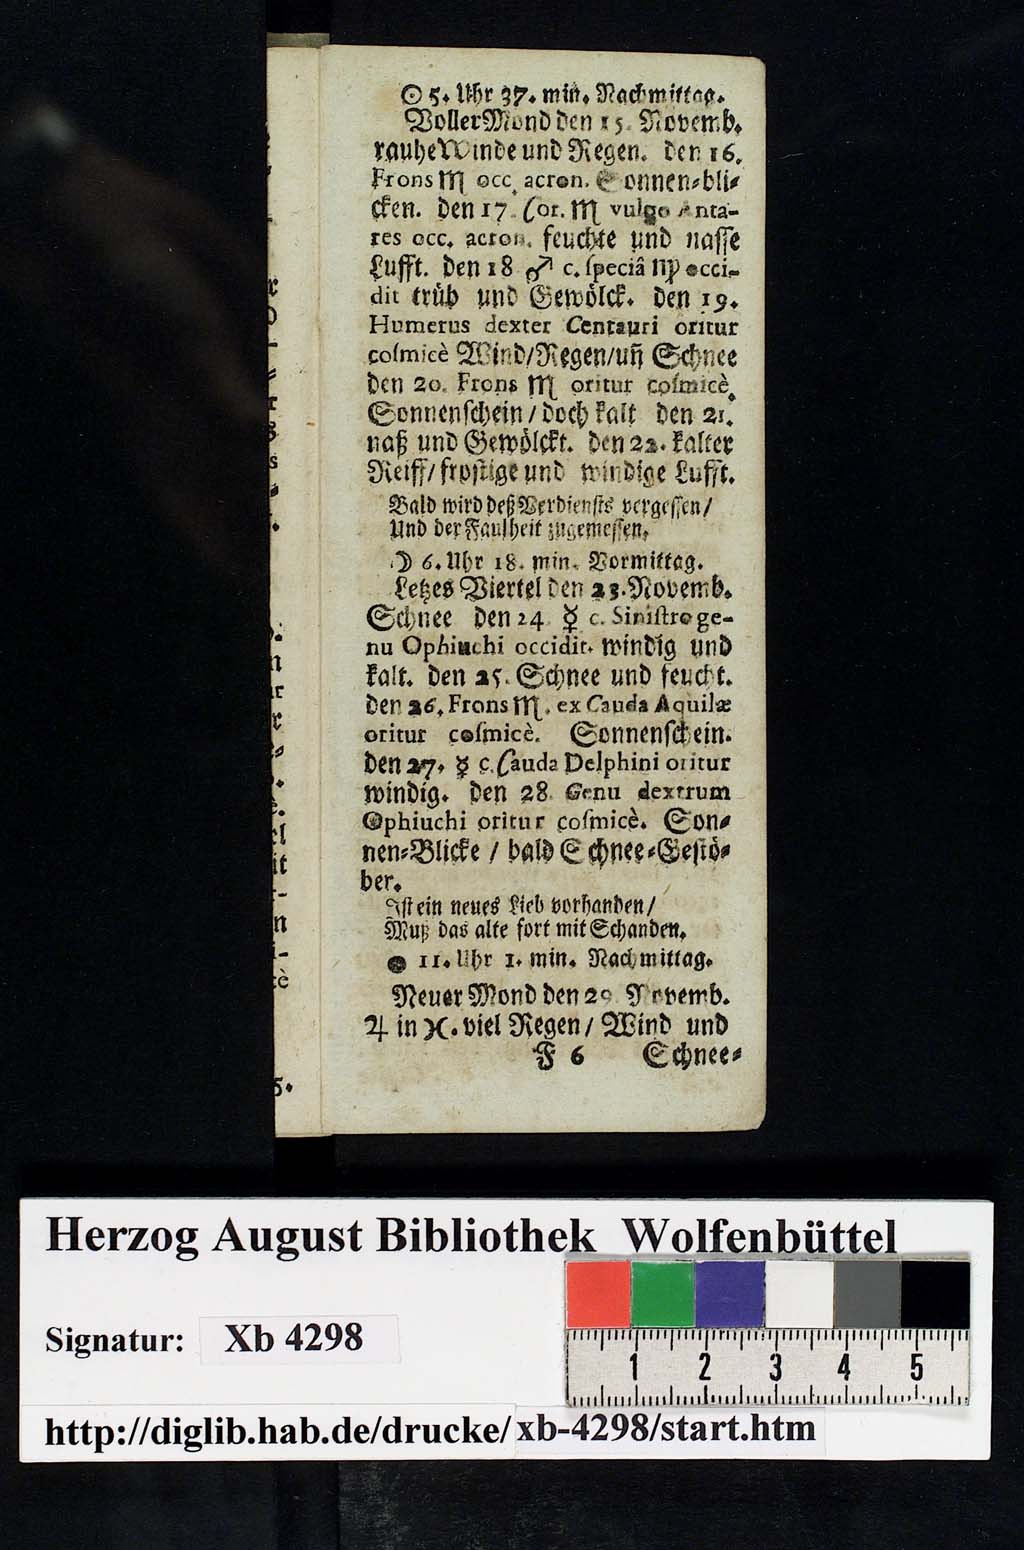 ☉ 5. Uhr 37. min. Nachmittag.
Voller Mond den 15. Novemb.
rauhe Winde und Regen. den 16.
Frons ♏ occ. acron. Sonnen⸗bli⸗
cken. den 17. Cor. ♏ vulgo Anta-
res occ. acron. feuchte und nasse
Lufft. den 18 ♂ c. ſpeciâ ♍ occi-
dit trüb und Gewölck. den 19.
Humerus dexter Centauri oritur
coſmicè Wind/Regen/uñ Schnee
den 20. Frons ♏ oritur coſmicè.
Sonnenschein / doch kalt den 21.
naß und Gewölckt. den 22. kalter
Reiff/ frostige und windige Lufft.
Bald wird deß Verdiensts vergessen/
Und der Faulheit zugemessen.
☽ 6. Uhr 18. min. Vormittag.
Letzes Viertel den 23. Novemb.
Schnee den 24 ☿ c. Siniſtro ge-
nu Ophiuchi occidit. windig und
kalt. den 25. Schnee und feucht.
den 26. Frons ♏. ex Cauda Aquilæ
oritur coſmicè. Sonnenschein.
den 27. ☿ c. Cauda Delphini oritur
windig. den 28 Genu dextrum
Ophiuchi oritur coſmicè. Son⸗
nen⸗Blicke / bald Schnee⸗Gestö⸗
ber.
Ist ein neues Lieb vorhanden/
Muß das alte fort mit Schanden.
● 11. Uhr 1. min. Nachmittag.
Neuer Mond den 29 Novemb.
♃ in ♓. viel Regen / Wind und
F 6 Schnee⸗
Herzog August Bibliothek Wolfenbüttel
Signatur: Xb 4298
http://diglib.hab.de/drucke/xb-4298/start.htm
1 2 3 4 5